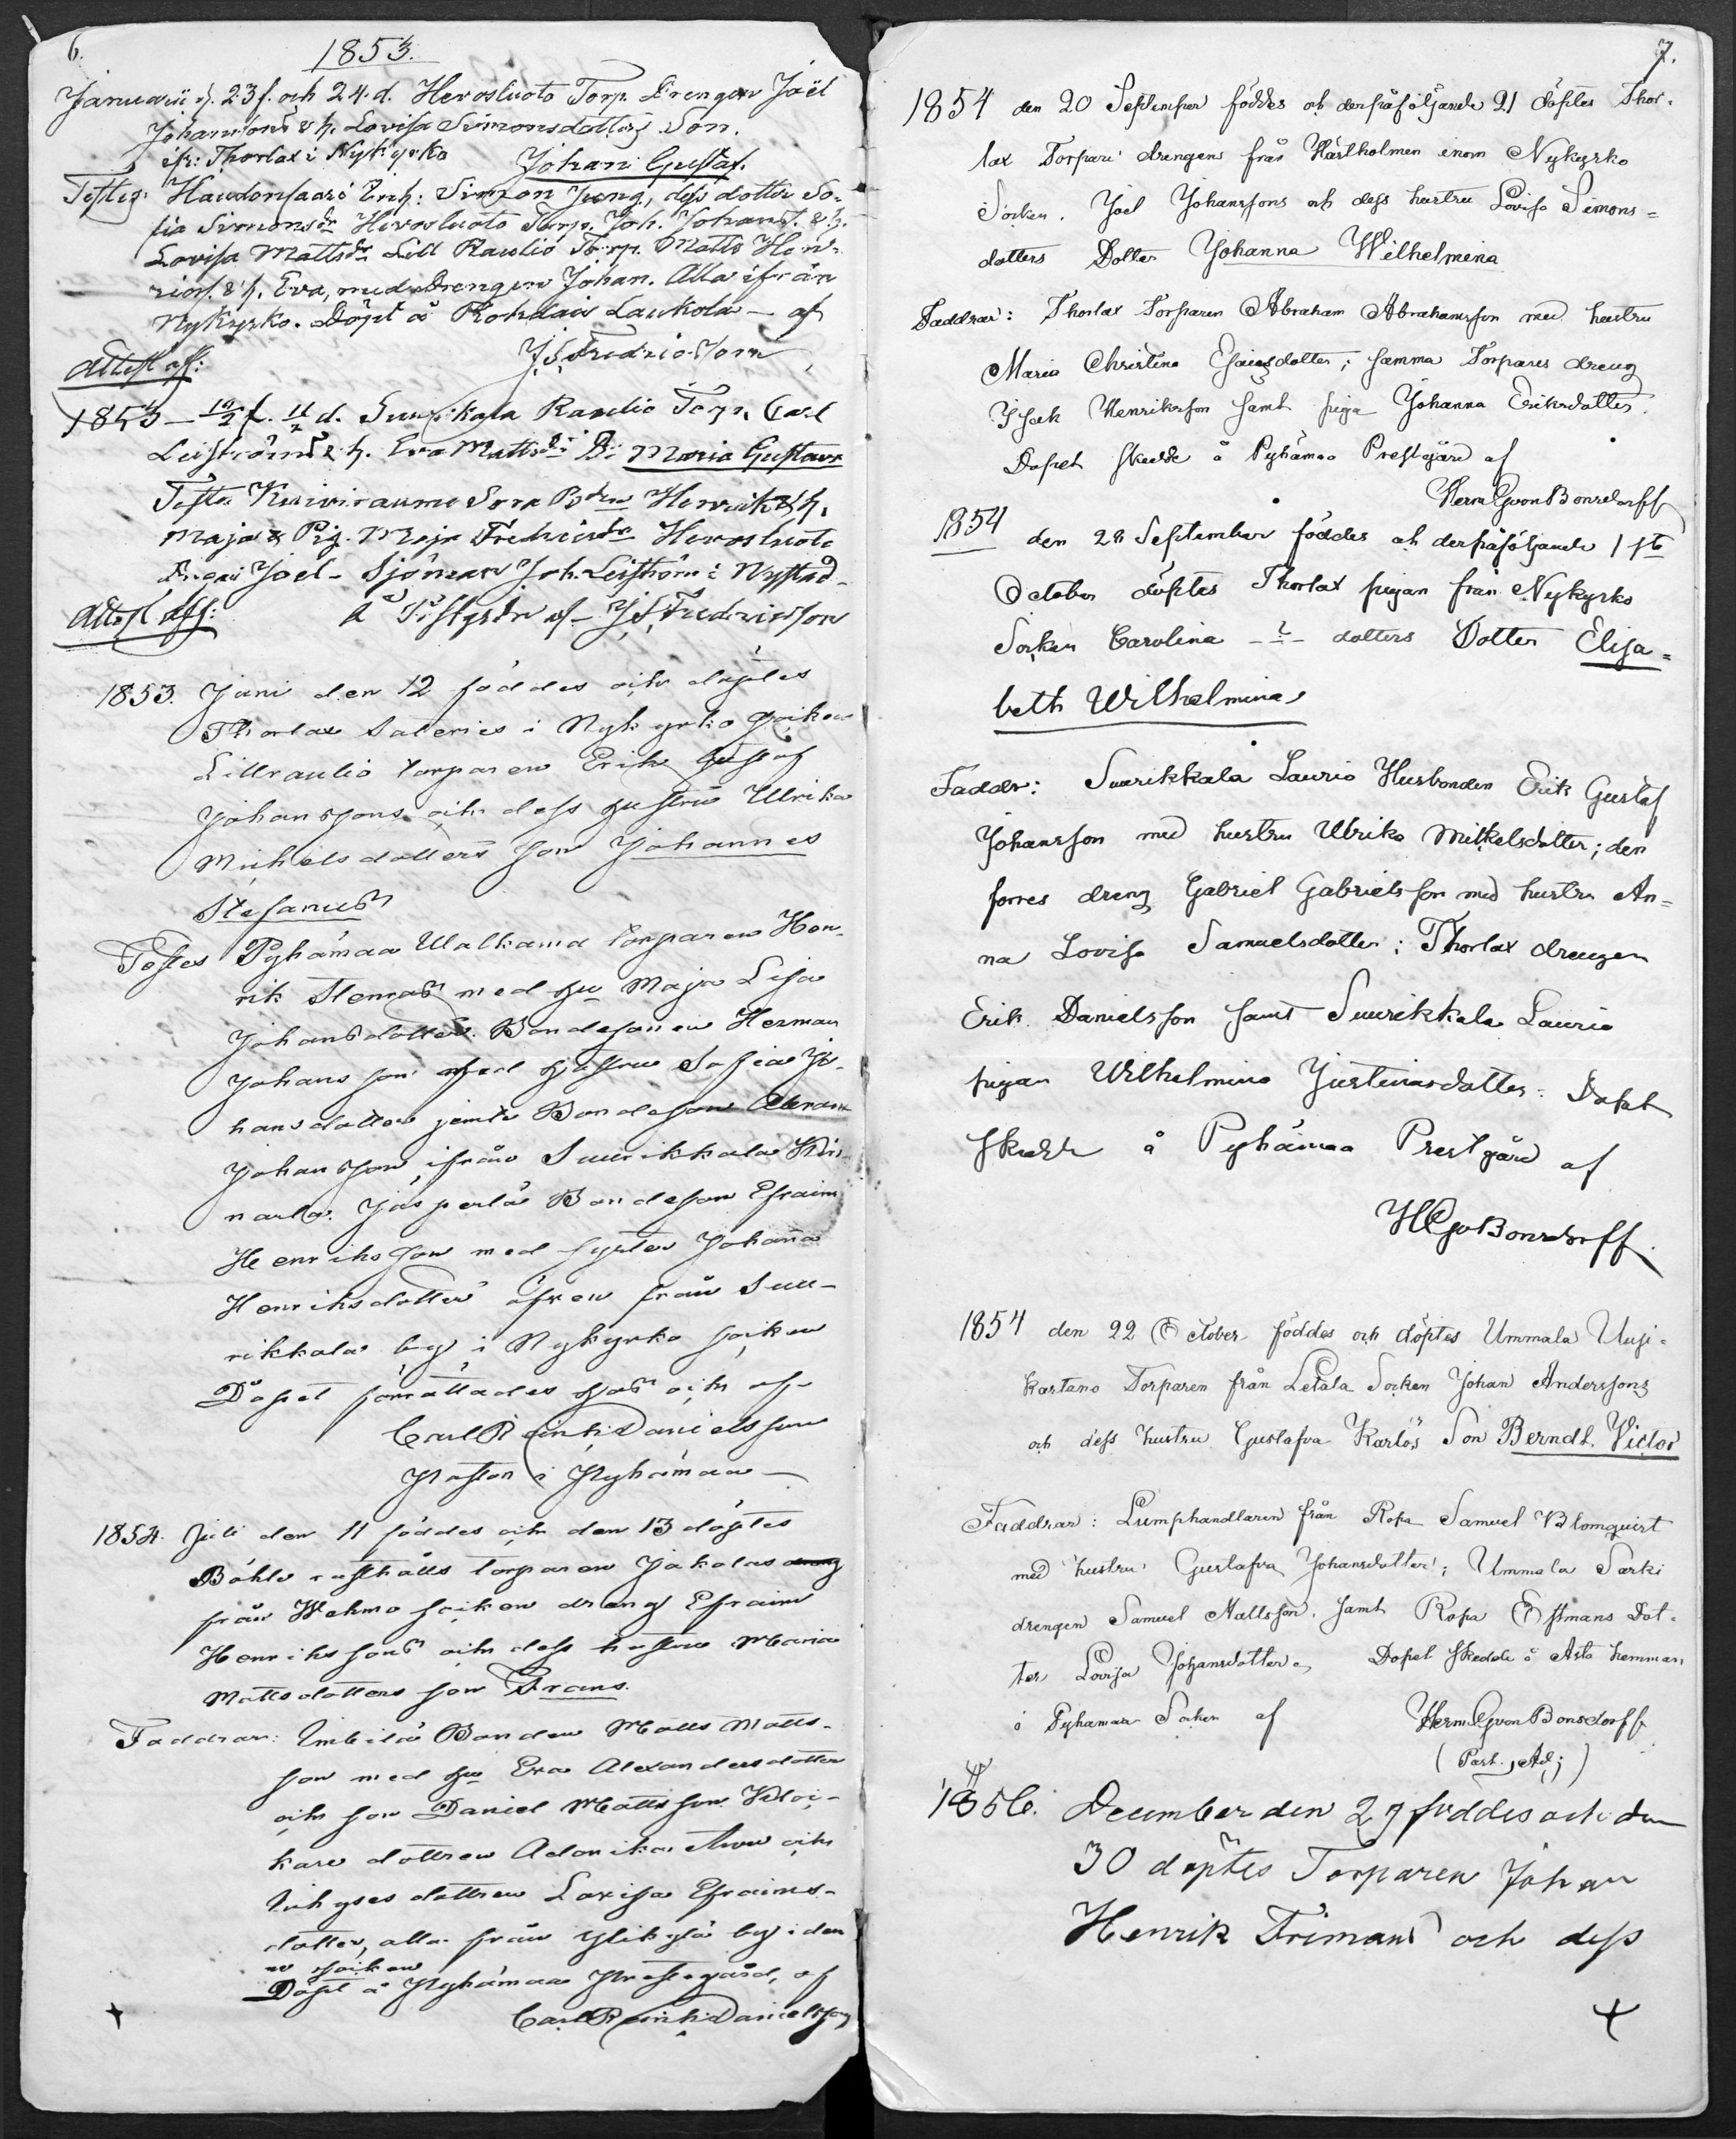 6.
1853.
Januarii d. 23 f. och 24. d. Hevosluoto Torp. Drengen Joël
Johanssons & h. Lovisa Simonsdotters Son.
ifr: Thorlax i Nykyrko Johan Gustaf.
Testes: Haudonsaari Enh: Simon Jung, dess dotter So-
fia Simonsdr Hevosluoto Torp. Joh. Johanss. & h.
Lovisa Mattsdr Lill Raulio Torp. Matts Hen-
rics. & h. Eva, med Drengen Johan. Alla ifrån
Nykyrko. Döpt å Rohdais Laukola – af
Attest aff: J. S. Fredricsson
1853 – f. d. Suurikkala Raulio Torp. Carl
Leiströms & h. Eva Mattsdr D: Maria Gustava
Testes Kuiviraumo Henrik & h.
Maja & Pig. Maja Fredricsdr Hevosluoto
Drgen Joel – Sjöman Joh. Leiström i Nystad
Attest aff: af – J. S. Fredricsson
1853. Juni den 12 föddes och döptes
Thorlax i Nykyrko Socken
Lillraulio torparen Erik Gustaf
Johanssons och dess hustru Ulrika
Michelsdotters son Johannes
Stefanus
Testes Pyhämaa Ulalkama torparen Hen-
rik med hu Maja Lisa
Johansdotter. Bondesonen Herman
Johansson med hustru Sofia Jo-
hansdotter jemte Bondeson Abram
Johansson, ifrån Suurikkala
Jasperlä Bondeson Efraim
Henriksson med syster Johanna
Henriksdotter äfven från Suu-
rikkala by i Nykyrko socken
Döpet förrättades och af
Carl R Danielsson
Pastor i Pyhämaa
1854. Juli den 11 föddes och den 13 döptes
Böhle rusthålls torparen Jakolas
från Wehmo socken dreng Efraim
Henrikssons och dess hustru Maria
Mattsdotters son Frans.
Faddrar: Bonden Matts Matts-
son med hu Eva Alexandersdotter
och son Daniel Mattsson
dottren och
dottren Lovisa Efraims-
dotter, alla från Ylikylä by i den
na socken
Döpt å Pyhämaa Prestegård, af
Carl R Danielsson
7.
1854 den 20 September föddes och derpåföljande 21 döptes Thor-
lax Torpare drengens från Hästholmen inom Nykyrko
Socken. Joel Johanssons och dess hustru Lovisa Simons=
dotters Dotter Johanna Wilhelmina
Faddrar: Thorlax Torparen Abraham Abrahamsson med hustru
Maria Christina Esaiasdotter; samma Torpares dreng
Isak Henriksson samt piga Johanna Eriksdotter.
Dopet skedde å Pyhämaa Prestgård af
Herm G von Bonsdorff
1854 den 28 September föddes och derpåföljande 1ste
October döptes Thorlax pigan från Nykyrko
Socken Carolina – ? – dotters Dotter Elisa=
beth Wilhelmina
Faddr: Suurikkala Laurio Husbonden Erik Gustaf
Johansson med hustru Ulrika Mickelsdotter; den
förres dreng Gabriel Gabrielsson med hustru An=
na Lovisa Samuelsdotter; Thorlax drengen
Erik Danielsson samt Suurikkala Laurio
pigan Wilhelmina Justinasdotter. Dopet
skedde å Pyhämaa Prestgård af
HGvBonsdorff.
1854 den 22 October föddes och döptes Ummala Uusi-
kartano Torparen från Letala Socken Johan Anderssons
och dess hustru Gustafva Karlös Son Berndt Victor
Faddrar: Lumphandlaren från Ropa Samuel Blomquist
med hustru Gustafva Johansdotter; Ummala Sarki
drengen Samuel Mattsson, samt Ropa Östmans Dot-
ter Lovisa Johansdotter. Dopet skedde å Asta hemman
i Pyhämaa Socken af Herm G von Bonsdorff
(Past. Adj;)
1856. December den 29 föddes och den
30 döptes Torparen Johan
Henrik Frimans och dess